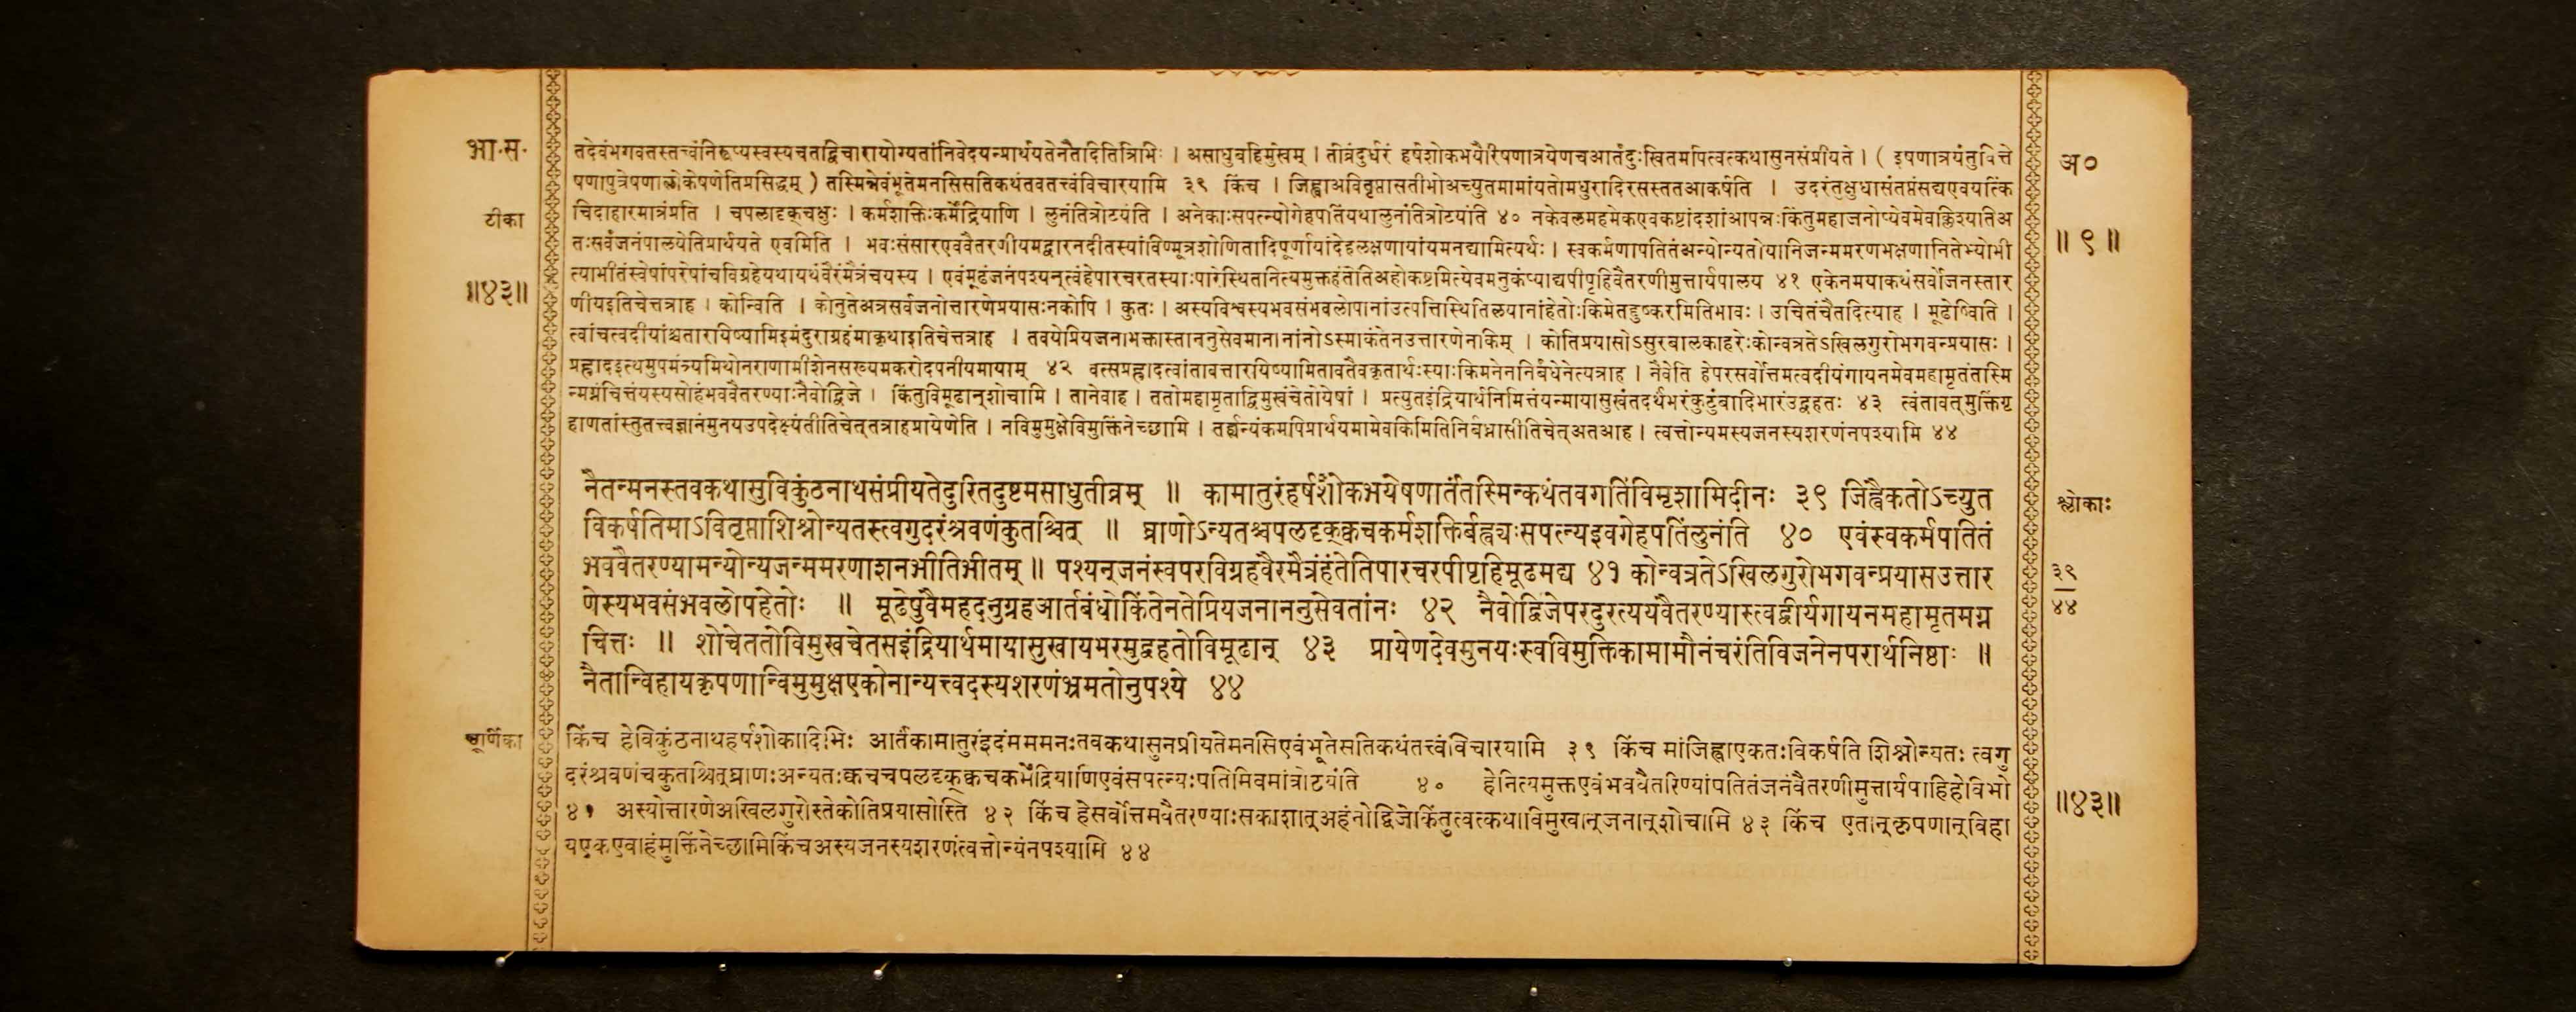 भा.स.
टीका
॥४३॥
तदेवंभगवतस्तत्त्वंनिरूप्यस्वस्यचतद्विचारायोग्यतांनिवेदयन्प्रार्थयतेनैतदितित्रिभिः । असाधुबहिर्मुखम् । तीव्रंदुर्धरं हर्षशोकभयैरीषणात्रयेणचआर्तंदुःखितमपित्वत्कथासुनसंप्रीयते । ( इषणात्रयंतुवित्ते
षणापुत्रेषणालोकेषणेतिप्रसिद्धम् ) तस्मिन्नेवंभूतेमनसिसतिकथंतवतत्त्वंविचारयामि ३९ किंच । जिह्वाअवितृप्तासतीभोअच्युतमामांयतोमधुरादिरसस्ततआकर्षति । उदरंतुक्षुधासंतप्तंसद्यएवयत्किं
चिदाहारमात्रंप्रति । चपलादृक्चक्षुः । कर्मशक्तिःकर्मेंद्रियाणि । लुनंतित्रोटयंति । अनेकाःसपत्न्योगेहपतिंयथालुनंतित्रोटयंति ४० नकेवलमहमेकएवकष्टांदशांआपन्नःकिंतुमहाजनोप्येवमेवक्लिश्यतिअ
तःसर्वंजनंपालयेतिप्रार्थयते एवमिति । भवःसंसारएववैतरणीयमद्वारनदीतस्यांविण्मूत्रशोणितादिपूर्णायांदेहलक्षणायांयमनद्यामित्यर्थः । स्वकर्मणापतितंअन्योन्यतोयानिजन्ममरणभक्षणानितेभ्योभी
त्याभीतंस्वेषांपरेषांचविग्रहेयथायथंवैरंमैत्रंचयस्य । एवंमूढंजनंपश्यन्त्वंहेपारचरतस्याःपारेस्थितनित्यमुक्तहंतेतिअहोकष्टमित्येवमनुकंप्याद्यपीपृहिवैतरणीमुत्तार्यपालय ४१ एकेनमयाकथंसर्वोजनस्तार
णीयइतिचेत्तत्राह । कोन्विति । कोनुतेअत्रसर्वजनोत्तारणेप्रयासःनकोपि । कुतः । अस्यविश्वस्यभवसंभवलोपानांउत्पत्तिस्थितिलयानांहेतोःकिमेतद्दुष्करमितिभावः । उचितंचैतदित्याह । मूढेष्विति ।
त्वांचत्वदीयांश्चतारयिष्यामिइमंदुराग्रहंमाकृथाइतिचेत्तत्राह । तवयेप्रियजनाभक्तास्ताननुसेवमानानांनोऽस्माकंतेनउत्तारणेनकिम् । कोतिप्रयासोऽसुरबालकाहरेःकोन्वत्रतेऽखिलगुरोभगवन्प्रयासः ।
प्रह्लादइत्थमुपमंत्र्यमिथोनराणामीशेनसख्यमकरोदपनीयमायाम् ४२ वत्सप्रह्लादत्वांतावत्तारयिष्यामितावतैवकृतार्थःस्याःकिमनेननिर्बंधेनेत्यत्राह । नैवेति हेपरसर्वोत्तमत्वदीयंगायनमेवमहामृतंतस्मि
न्मग्नंचित्तंयस्यसोहंभववैतरण्याःनैवोद्विजे । किंतुविमूढान्शोचामि । तानेवाह । ततोमहामृताद्विमुखंचेतोयेषां । प्रत्युतइंद्रियार्थनिमित्तंयन्मायासुखंतदर्थंभरंकुटुंबादिभारंउद्वहतः ४३ त्वंतावत्मुक्तिंगृ
हाणतांस्तुतत्त्वज्ञानंमुनयउपदेक्ष्यंतीतिचेत्तत्राहप्रायेणेति । नविमुमुक्षेविमुक्तिंनेच्छामि । तर्ह्यन्यंकमपिप्रार्थयमामेवकिमितिनिर्बध्नासीतिचेत्अतआह । त्वत्तोन्यमस्यजनस्यशरणंनपश्यामि ४४
नैतन्मनस्तवकथासुविकुंठनाथसंप्रीयतेदुरितदुष्टमसाधुतीव्रम् ॥ कामातुरंहर्षशोकभयेषणार्तंतस्मिन्कथंतवगतिंविमृशामिदीनः ३९ जिह्वैकतोऽच्युत
विकर्षतिमाऽवितृप्ताशिश्नोन्यतस्त्वगुदरंश्रवणंकुतश्चित् ॥ घ्राणोऽन्यतश्चपलदृक्क्वचकर्मशक्तिर्बह्व्यःसपत्न्यइवगेहपतिंलुनंति ४० एवंस्वकर्मपतितं
भववैतरण्यामन्योन्यजन्ममरणाशनभीतिभीतम् ॥ पश्यन्जनंस्वपरविग्रहवैरमैत्रंहंतेतिपारचरपीपृहिमूढमद्य ४१ कोन्वत्रतेऽखिलगुरोभगवन्प्रयासउत्तार
णेस्यभवसंभवलोपहेतोः ॥ मूढेषुवैमहदनुग्रहआर्तबंधोकिंतेनतेप्रियजनाननुसेवतांनः ४२ नैवोद्विजेपरदुरत्ययवैतरण्यास्त्वद्वीर्यगायनमहामृतमग्न
चित्तः ॥ शोचेततोविमुखचेतसइंद्रियार्थमायासुखायभरमुद्वहतोविमूढान् ४३ प्रायेणदेवमुनयःस्वविमुक्तिकामामौनंचरंतिविजनेनपरार्थनिष्ठाः ॥
नैतान्विहायकृपणान्विमुमुक्षएकोनान्यत्त्वदस्यशरणंभ्रमतोनुपश्ये ४४
चूर्णिका
किंच हेविकुंठनाथहर्षशोकादिभिः आर्तंकामातुरंइदंमममनःतवकथासुनप्रीयतेमनसिएवंभूतेसतिकथंतत्त्वंविचारयामि ३९ किंच मांजिह्वाएकतःविकर्षति शिश्नोन्यतः त्वगु
दरंश्रवणंचकुतश्चित्घ्राणःअन्यतःक्वचचपलदृक्क्वचकर्मेंद्रियाणिएवंसपत्न्यःपतिमिवमांत्रोटयंति ४० हेनित्यमुक्तएवंभववैतरिण्यांपतितंजनंवैतरणीमुत्तार्यपाहिहेविभो
४१ अस्योत्तारणेअखिलगुरोस्तेकोतिप्रयासोस्ति ४२ किंच हेसर्वोत्तमवैतरण्याःसकाशात्अहंनोद्विजेकिंतुत्वत्कथाविमुखान्जनान्शोचामि ४३ किंच एतान्कृपणान्विहा
यएकएवाहंमुक्तिंनेच्छामिकिंचअस्यजनस्यशरणंत्वत्तोन्यंनपश्यामि ४४
अ०
॥ ९ ॥
श्लोकाः
३९
४४
॥४३॥